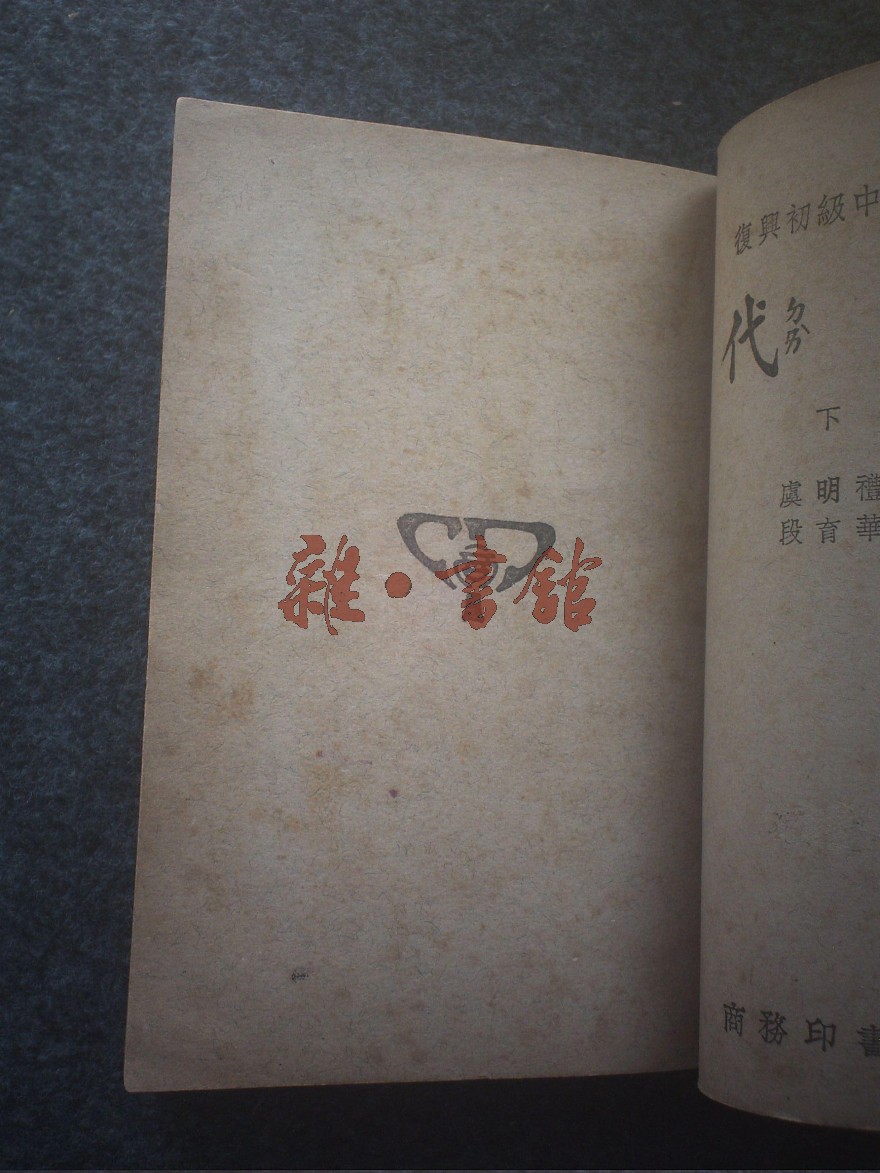 雜·書館
復興初級中
代 ㄉㄞˋ
下
虞明禮
段育華
商務印書